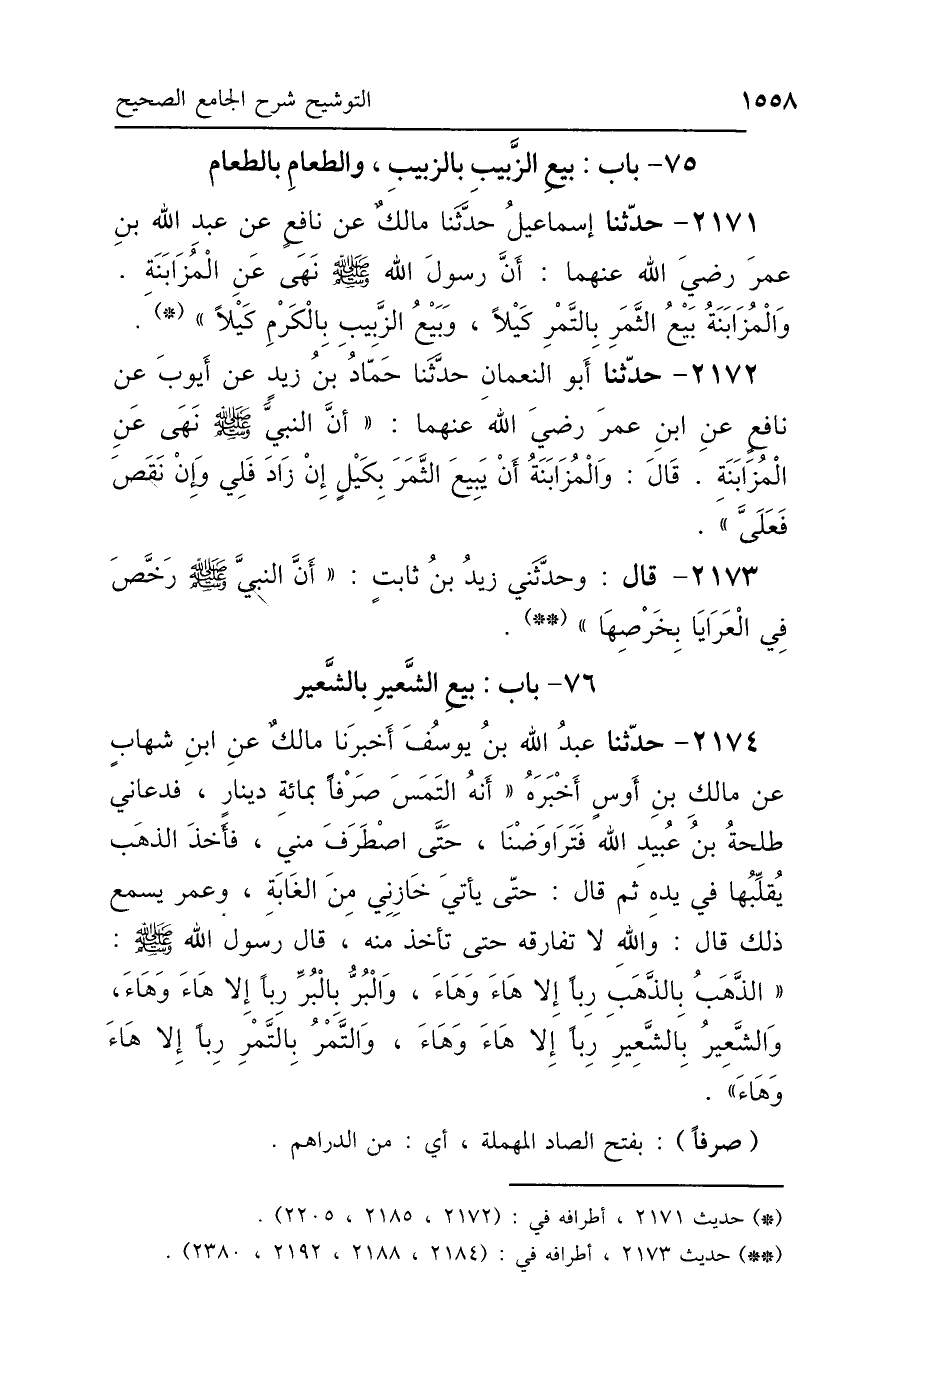 ١٥٥٨ التوشيح شرح الجامع الصحيح
٧٥- باب : بيعِ الزَّبيبِ بالزبيبِ ، والطعامِ بالطعام
٢١٧١- حدّثنا إسماعيلُ حدَّثَنا مالكٌ عن نافعٍ عن عبدِ الله بنِ
عمرَ رضيَ الله عنهما : أنَّ رسولَ الله ﷺ نَهَى عَنِ الْمُزَابَنَةِ .
وَالْمُزَابَنَةُ بَيْعُ الثَّمَرِ بِالتَّمْرِ كَيْلاً ، وَبَيْعُ الزَّبِيبِ بِالْكَرْمِ كَيْلاً » (*) .
٢١٧٢- حدّثنا أبو النعمانِ حدَّثَنا حَمّادُ بنُ زيدٍ عن أيوبَ عن
نافعٍ عنِ ابنِ عمرَ رضيَ الله عنهما : « أنَّ النبيَّ ﷺ نَهَى عَنِ
الْمُزَابَنَةِ . قَالَ : وَالْمُزَابَنَةُ أَنْ يَبِيعَ الثَّمَرَ بِكَيْلٍ إِنْ زَادَ فَلِي وَإِنْ نَقَصَ
فَعَلَيَّ » .
٢١٧٣- قال : وحدَّثَني زيدُ بنُ ثابتٍ : « أَنَّ النبيَّ ﷺ رَخَّصَ
فِي الْعَرَايَا بِخَرْصِهَا » (**) .
٧٦- باب : بيعِ الشَّعيرِ بالشَّعيرِ
٢١٧٤- حدّثنا عبدُ الله بنُ يوسُفَ أَخبرَنا مالكٌ عنِ ابنِ شهابٍ
عن مالكِ بنِ أوسٍ أَخْبَرَهُ « أنهُ التَمَسَ صَرْفاً بمائةِ دينارٍ ، فدعاني
طلحةُ بنُ عُبيدِ الله فَتَرَاوَضْنَا ، حَتَّى اصْطَرَفَ مني ، فأَخذَ الذهَب
يُقلِّبُها في يدهِ ثم قال : حتّى يأتيَ خَازِنِي مِنَ الغَابَةِ ، وعمر يسمع
ذلك قال : واللهِ لا تفارقه حتى تأخذ منه ، قال رسول الله ﷺ :
« الذَّهَبُ بِالذَّهَبِ رِباً إِلا هَاءَ وَهَاءَ ، وَالْبُرُّ بِالْبُرِّ رِباً إِلا هَاءَ وَهَاءَ،
وَالشَّعِيرُ بِالشَّعِيرِ رِباً إِلا هَاءَ وَهَاءَ ، وَالتَّمْرُ بِالتَّمْرِ رِباً إِلا هَاءَ
وَهَاءَ» .
( صرفاً ) : بفتح الصاد المهملة ، أي : من الدراهم .
(*) حديث ٢١٧١ ، أطرافه في : (٢١٧٢ ، ٢١٨٥ ، ٢٢٠٥) .
(**) حديث ٢١٧٣ ، أطرافه في : (٢١٨٤ ، ٢١٨٨ ، ٢١٩٢ ، ٢٣٨٠) .